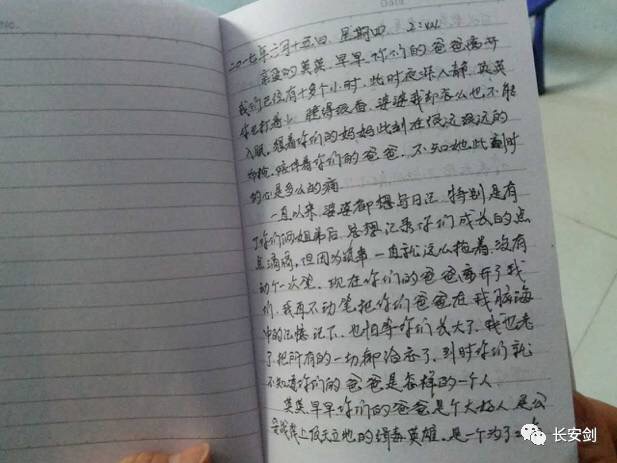 Date
二〇一七年月十五日 星期四 2:44
亲爱的英英、早早，你们的爸爸离开
我们已经有十多个小时，此时夜深人静，英英
你也打着小 睡得很香，婆婆我却怎么也不能
入眠，想着你们的妈妈此刻在很远很远的
陪伴着你们的爸爸，不知她此刻时
的心是多么的痛
一直以来，婆婆都想写日记，特别是有
了你们两姐弟后，总想记录你们成长的点
点滴滴，但因为琐事一直就这么拖着，没有
动个一次笔，现在你们的爸爸离开了我
们，我再不动笔把你们爸爸在我脑海
中的记忆记下，也怕等你们长大了，我也老
了，把所有的一切都淡忘了，到时你们就
不知道你们的爸爸是怎样的一个人.
英英、早早你们的爸爸是个大好人，是公
安战线上顶天立地的缉毒英雄，是一个为了
长安剑